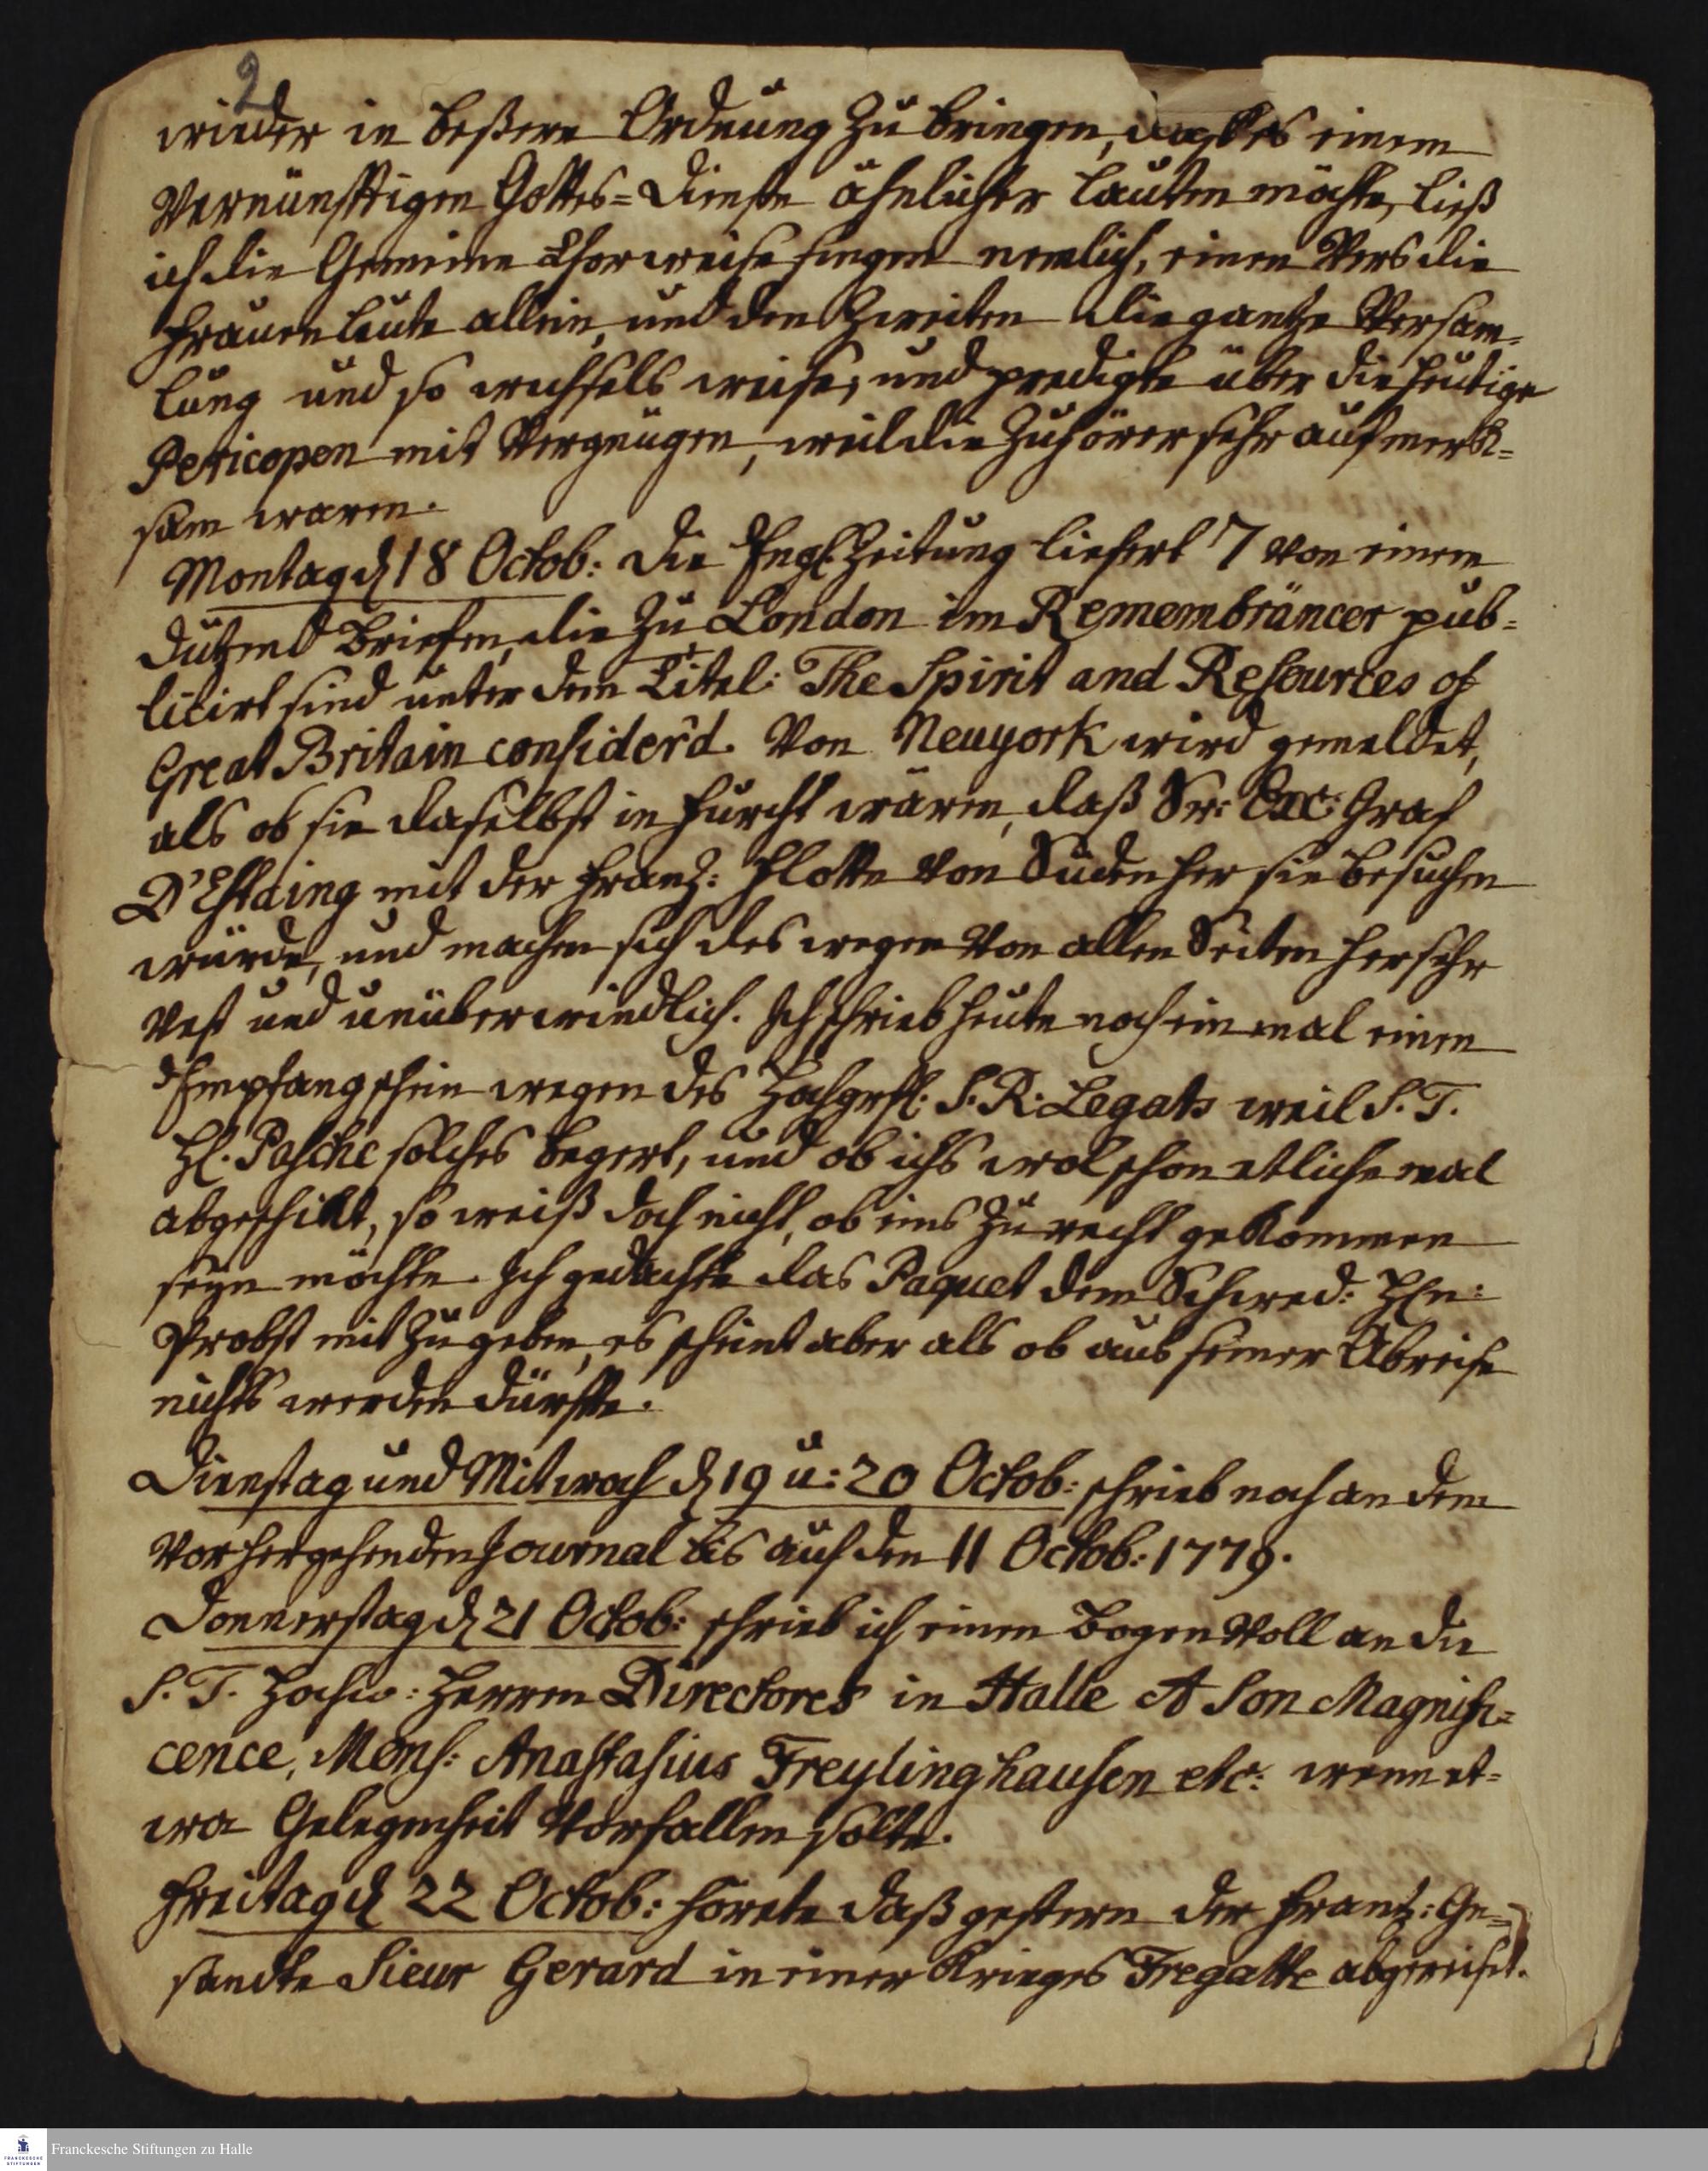 2
wieder in beßere Ordnung zu bringen, daß es einem
vernünftigen Gottes=Dienste ähnlicher lauten möchte, ließ
ich die Gemeine Chorweise singen nemlich, einen Vers die
Frauenleute allein, und den Zweiten die gantze Versam=
lung und so wechsels weise, und predigte über die heutige
Pericopen mit Vergnügen, weil die Zuhörer sehr aufmerk=
sam waren.
Montag d 18 Octob: Die Engl. Zeitung liefert 7 von einem
Dutzend Briefen, die zu London im Remembräncer pub=
licirt sind unter dem Titel: The Spirit and Resources of
Great Britain consider'd. Von Neuyork wird gemeldet,
als ob sie daselbst in Furcht wären, daß Sr: Exc: Graf
D'Estaing mit der Franz: Flotte von Süden her sie besuchen
würde, und machen sich des wegen von allen Seiten her sehr
vest und unüberwindlich. Ich schrieb heute noch ein mal einen
Empfangschein wegen des Hochgrfl. S. R. Legats weil S. T.
H. Pasche solches begert, und ob ichs wol schon etliche mal
abgeschikt, so weiß doch nicht, ob eins zu recht gekommen
seyn möchte. Ich gedachte das Paquet dem Schwed: HEn:
Probst mit zu geben, es scheint aber als ob aus seiner Abreise
nichts werden dürfte.
Dienstag und Mitwoch d 19 u: 20 Octob: schrieb noch an dem
vorhergehenden Journal bis auf den 11 Octob: 1779.
Donnerstag d 21 Octob: schrieb ich einen Bogen voll an die
S. T. Hochw: Herren Directores in Halle A Son Magnifi=
cence, Mons: Anastasius Freylinghausen etc: wenn et=
wa Gelegenheit vorfallen solte.
Freitag d 22 Octob: hörete daß gestern der Frantz: Ge=
sandte Sieur Gerard in einer Krieges Fregatte abgereiset.
Franckesche Stiftungen zu Halle
FRANCKESCHE
STIFTUNGEN